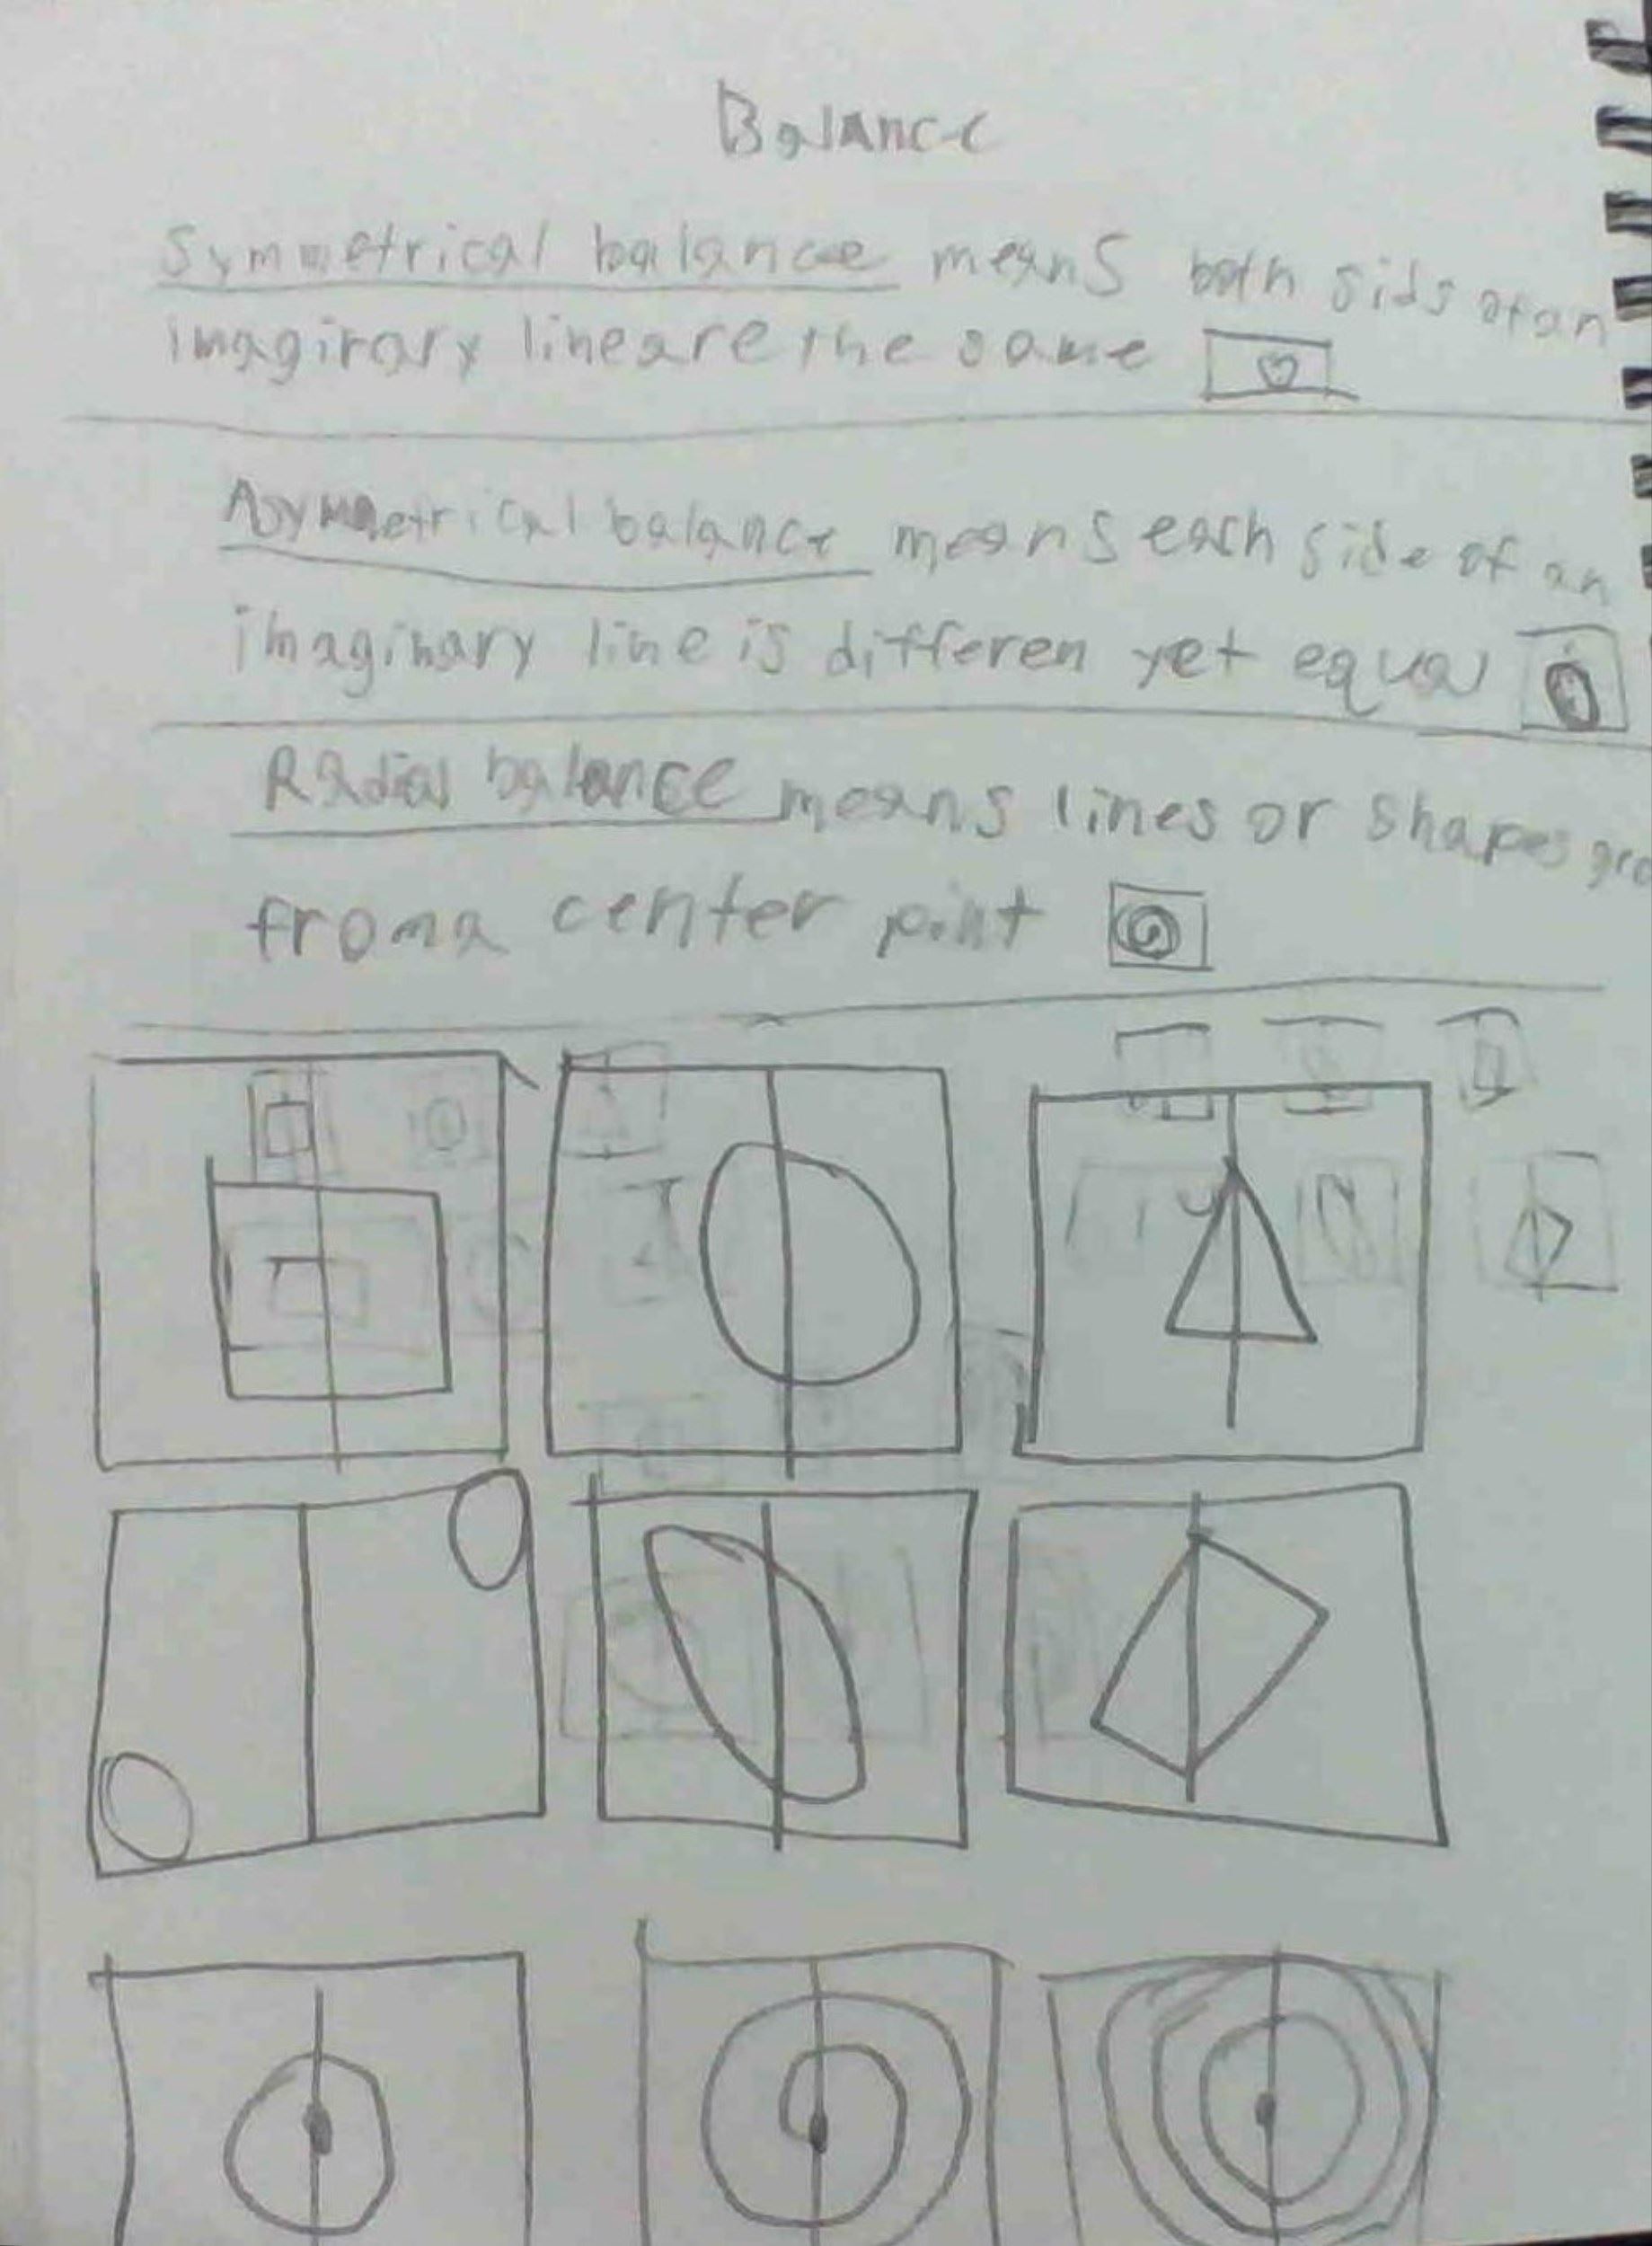 Balance
Symmetrical balance means both sids of an
imagirary line are the same
Asymmetrical balance means each side of an
imaginary line is differen yet equal
Radial balance means lines or shapes
from a center point